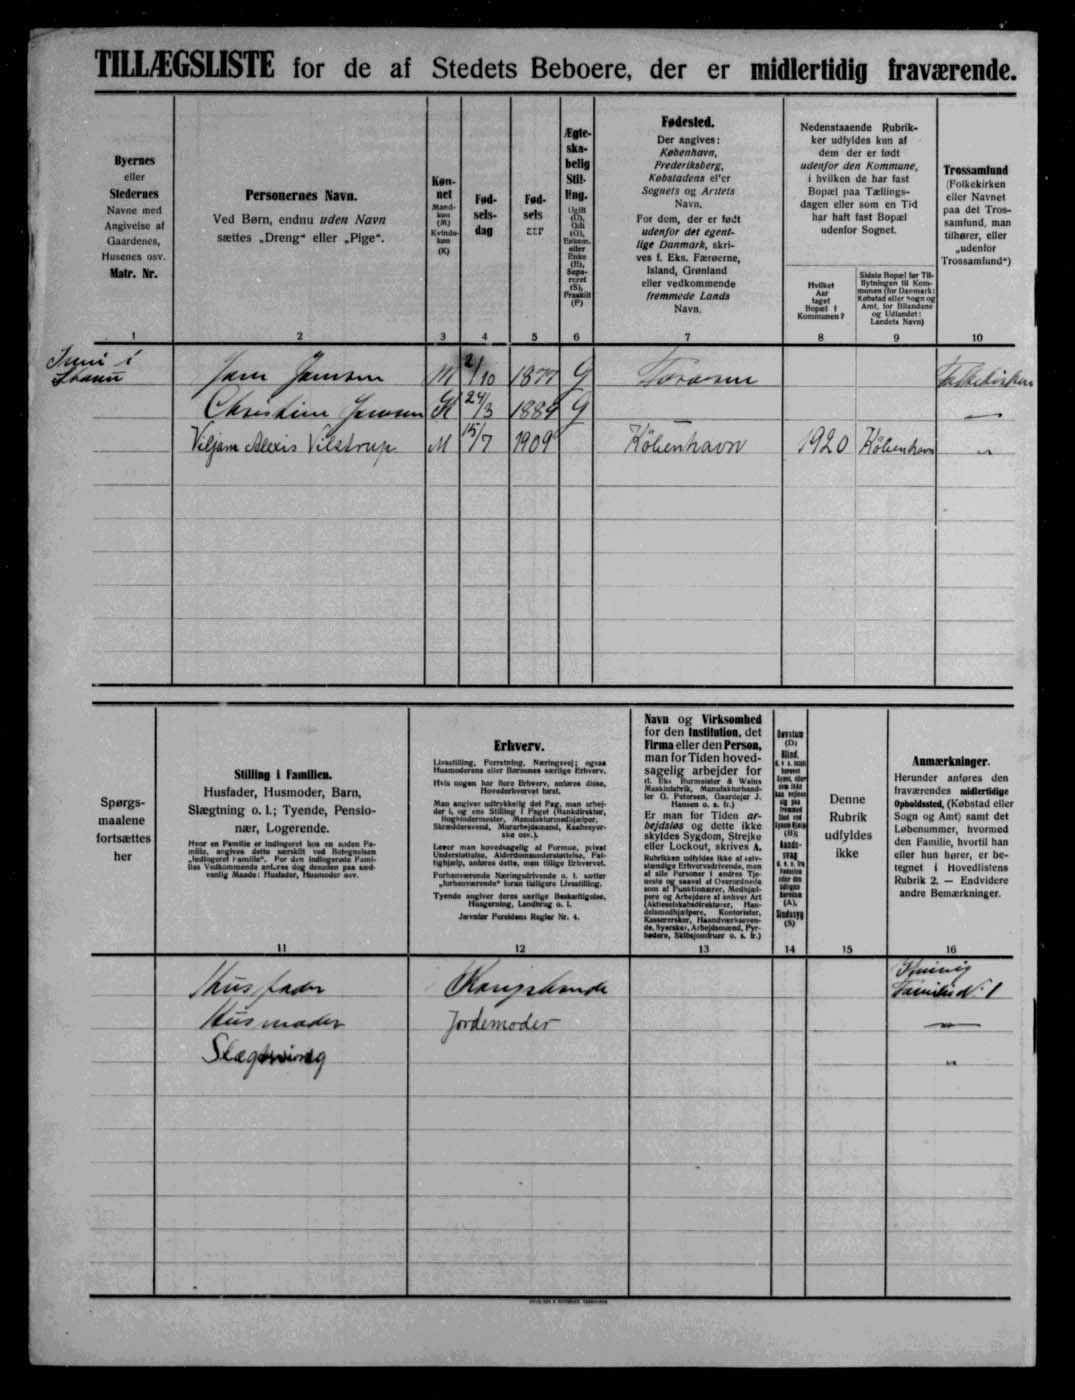 TILLÆGSLISTE for de af Stedets Beboere, der er midlertidig fraværende.
Byernes
eller
Stedernes
Navne med
Angivelse af
Gaardenes,
Husenes osv.
Matr. Nr.
1
Personernes Navn.
Ved Børn, endnu uden Navn
sættes „Dreng“ eller „Pige“.
2
Køn-
net
Mand-
køn
(M)
Kvinde-
køn
(K)
3
Fød-
sels-
dag
4
Fød-
sels
aar
5
Ægte-
ska-
belig
Stil-
ling.
Ugift
(U),
Gift
(G),
Enkem.
eller
Enke
(E),
Sepa-
reret
(S),
Fraskilt
(F)
6
Fødested.
Der angives:
København,
Frederiksberg,
Købstadens eller
Sognets og Amtets
Navn.
For dem, der er født
udenfor det egent-
lige Danmark, skri-
ves f. Eks. Færøerne,
Island, Grønland
eller vedkommende
fremmede Lands
Navn.
7
Nedenstaaende Rubrik-
ker udfyldes kun af
dem der er født
udenfor den Kommune,
i hvilken de har fast
Bopæl paa Tællings-
dagen eller som en Tid
har haft fast Bopæl
udenfor Sognet.
Hvilket
Aar
taget
Bopæl i
Kommunen?
8
Sidste Bopæl før Til-
flytningen til Kom-
munen (for Danmark:
Købstad eller Sogn og
Amt, for Bilandene
og Udlandet:
Landets Navn)
9
Trossamfund
(Folkekirken
eller Navnet
paa det Tros-
samfund, man
tilhører, eller
„udenfor
Trossamfund“)
10
Jensen M 2/10 1877 G Folkekirken
Christine Jensen K 24/3 1884 G — —
Viljam Alexis Vilstrup M 15/7 1909 København 1920 København "
Spørgs-
maalene
fortsættes
her
Stilling i Familien.
Husfader, Husmoder, Barn,
Slægtning o. l.; Tyende, Pensio-
nær, Logerende.
Hvor en Familie er indlogeret hos en anden Fa-
milie, angives dette særskilt ved Betegnelsen
„indlogeret Familie“. For den indlogerede Fami-
lies Vedkommende anføres dog desuden paa sæd-
vanlig Maade: Husfader, Husmoder osv.
11
Erhverv.
Livsstilling, Forretning, Næringsvej; ogsaa
Husmoderens eller Børnenes særlige Erhverv.
Hvis nogen har flere Erhverv, anføres disse,
Hovederhvervet først.
Man angiver udtrykkelig det Fag, man arbej-
der i, og ens Stilling i Faget (Bankdirektør,
Bogbindermester, Manufakturmedhjælper,
Skræddersvend, Murarbejdsmand, Kaabesyer-
ske osv.).
Lever man hovedsagelig af Formue, privat
Understøttelse, Alderdomsunderstøttelse, Fat-
tighjælp, anføres dette, men tillige Erhvervet.
Forhenværende Næringsdrivende o. l. sætter
„forhenværende“ foran tidligere Livsstilling.
Tyende angiver deres særlige Beskæftigelse,
Husgerning, Landbrug o. l.
Jævnfør Forsidens Regler Nr. 4.
12
Navn og Virksomhed
for den Institution, det
Firma eller den Person,
man for Tiden hoved-
sagelig arbejder for
(f. Eks Burmeister & Wains
Maskinfabrik, Manufakturhand-
ler G. Petersen, Gaardejer J.
Hansen o. s. fr.)
Er man for Tiden ar-
bejdsløs og dette ikke
skyldes Sygdom, Strejke
eller Lockout, skrives A.
Rubrikken udfyldes ikke af selv-
stændige Erhvervsdrivende, men
af alle Personer i andres Tje-
neste og saavel af Overordnede
som af Funktionærer, Medhjæl-
pere og Arbejdere af enhver Art
(Aktieselskabsdirektører, Han-
delsmedhjælpere, Kontorister,
Kassererske, Haandværkssven-
de, Syersker, Arbejdsmænd, Fyr-
bødere, Skibsjomfruer o. s. fr.)
13
Døvstum
(D)
Blind,
14
Denne
Rubrik
udfyldes
ikke
15
Anmærkninger.
Herunder anføres den
fraværendes midlertidige
Opholdssted, (Købstad eller
Sogn og Amt) samt det
Løbenummer, hvormed
den Familie, hvortil han
eller hun hører, er be-
tegnet i Hovedlistens
Rubrik 2. — Endvidere
andre Bemærkninger.
16
Husfader
Familie Nr 1
Husmoder Jordemoder —
Slægtning "